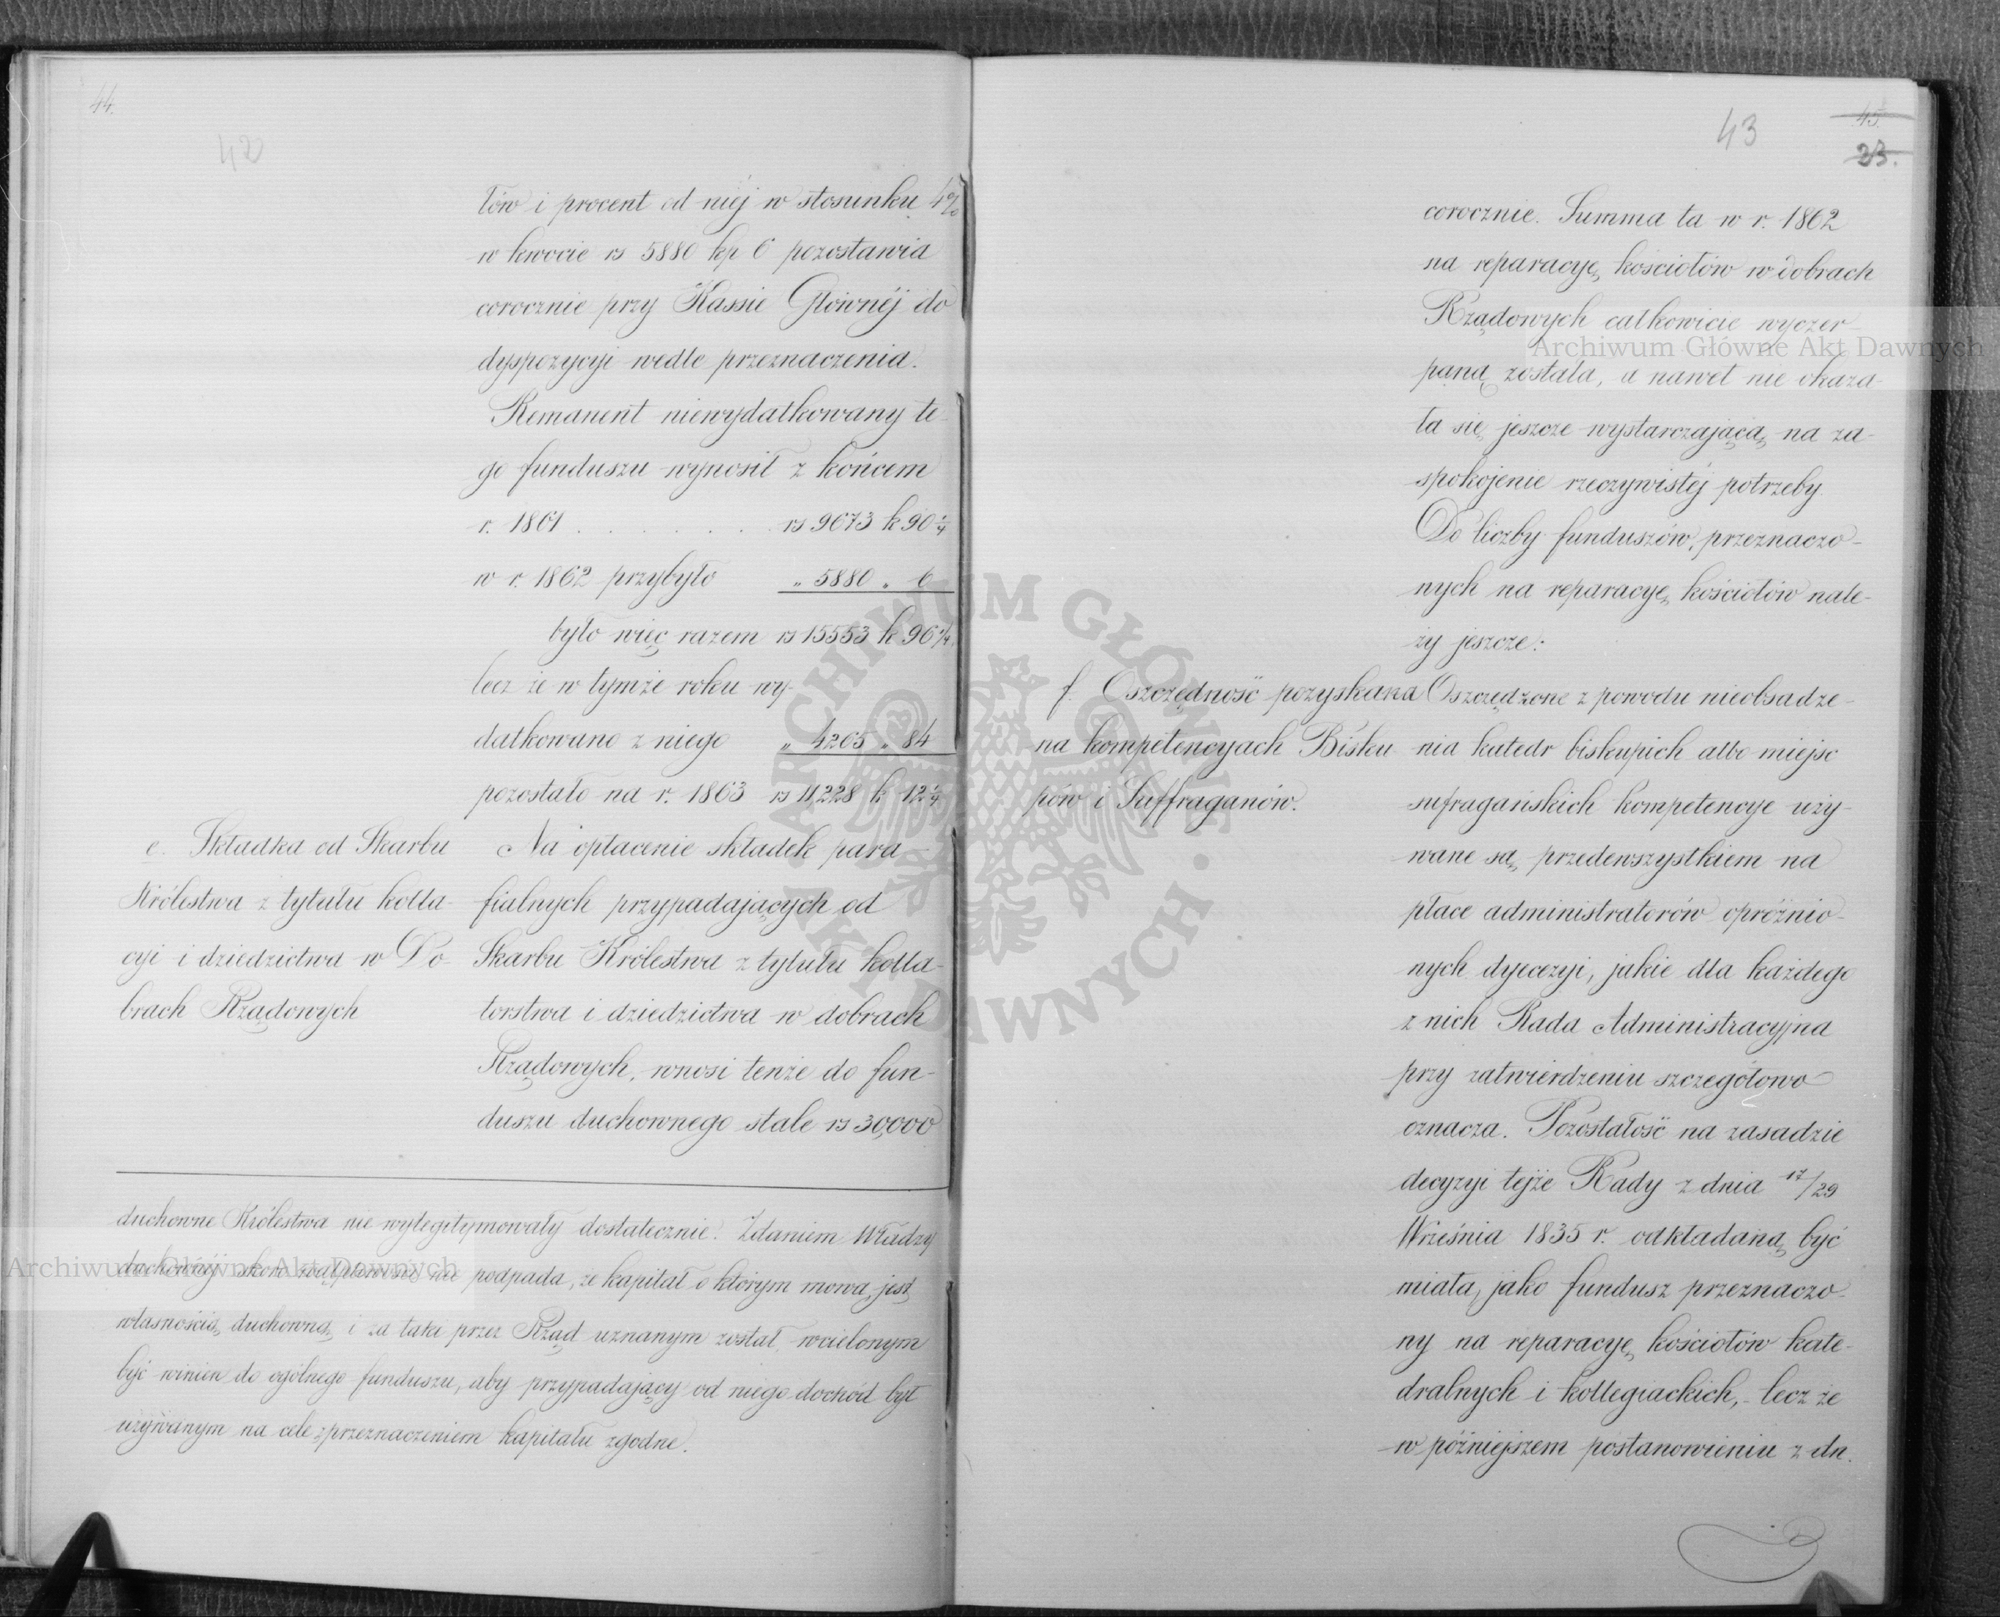 44.
42
łów i procent od niéj w stosunku 4%
w kwocie rs 5880 kp 6 pozostawia
corocznie przy Kassie Głównéj do
dyspozycyi wedle przeznaczenia.
Remanent niewydatkowany te-
go funduszu wynosił z końcem
r. 1861 . . . . . . rs 9673 k 90 1/4
w r. 1862 przybyło „ 5880 „ 6
było więc razem rs 15553 k 96 1/4
lecz że w tymże roku wy-
datkowano z niego „ 4265 „ 84
pozostało na r. 1863 rs 11,228 k 12 1/4
e. Składka od Skarbu
Królestwa z tytułu kolla-
cyi i dziedzictwa w Do-
brach Rządowych
Na opłacenie składek para-
fialnych przypadających od
Skarbu Królestwa z tytułu kolla-
torstwa i dziedzictwa w dobrach
Rządowych, wnosi tenże do fun-
duszu duchownego stale rs 30,000
duchowne Królestwa nie wylegitymowały dostatecznie. Zdaniem Władzy
duchownéj skoro wątpliwości nie podpada, że kapitał o którym mowa, jest
własnością duchowną i za taki przez Rząd uznanym został, wcielonym
być winien do ogólnego funduszu, aby przypadający od niego dochód był
używanym na cele z przeznaczeniem kapitału zgodne.
43
45.
23.
corocznie. Summa ta w r. 1862
na reparacyę kościołów w dobrach
Rządowych całkowicie wyczer-
paną została, a nawet nie okaza-
ła się jeszcze wystarczającą na za-
spokojenie rzeczywistéj potrzeby.
Do liczby funduszów, przeznaczo-
nych na reparacyę kościołów nale-
ży jeszcze:
f. Oszczędność pozyskana
na kompetencyach Bisku-
pów i Suffraganów.
Oszczędzone z powodu nieobsadze-
nia katedr biskupich albo miejsc
sufragańskich kompetencye uży-
wane są, przedewszystkiem na
płace administratorów opróżnio-
nych dyecezyi, jakie dla każdego
z nich Rada Administracyjna
przy zatwierdzeniu szczegółowo
oznacza. Pozostałość na zasadzie
decyzyi tejże Rady z dnia 17/29
Września 1835 r. odkładaną być
miała, jako fundusz przeznaczo-
ny na reparacyę kościołów kate-
dralnych i kollegiackich, - lecz że
w późniejszem postanowieniu z dn.
Archiwum Główne Akt Dawnych
Archiwum Główne Akt Dawnych
ARCHIWUM GŁÓWNE · AKT DAWNYCH ·